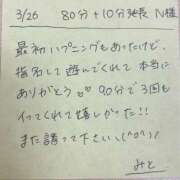 3/26 80分+10分延長 N様
最初ハプニングもあったけど、
指名して遊んでくれて本当に
ありがとう♡ 90分で3回も
イってくれて嬉しかった!!
また誘って下さい\(^o^)/
みと